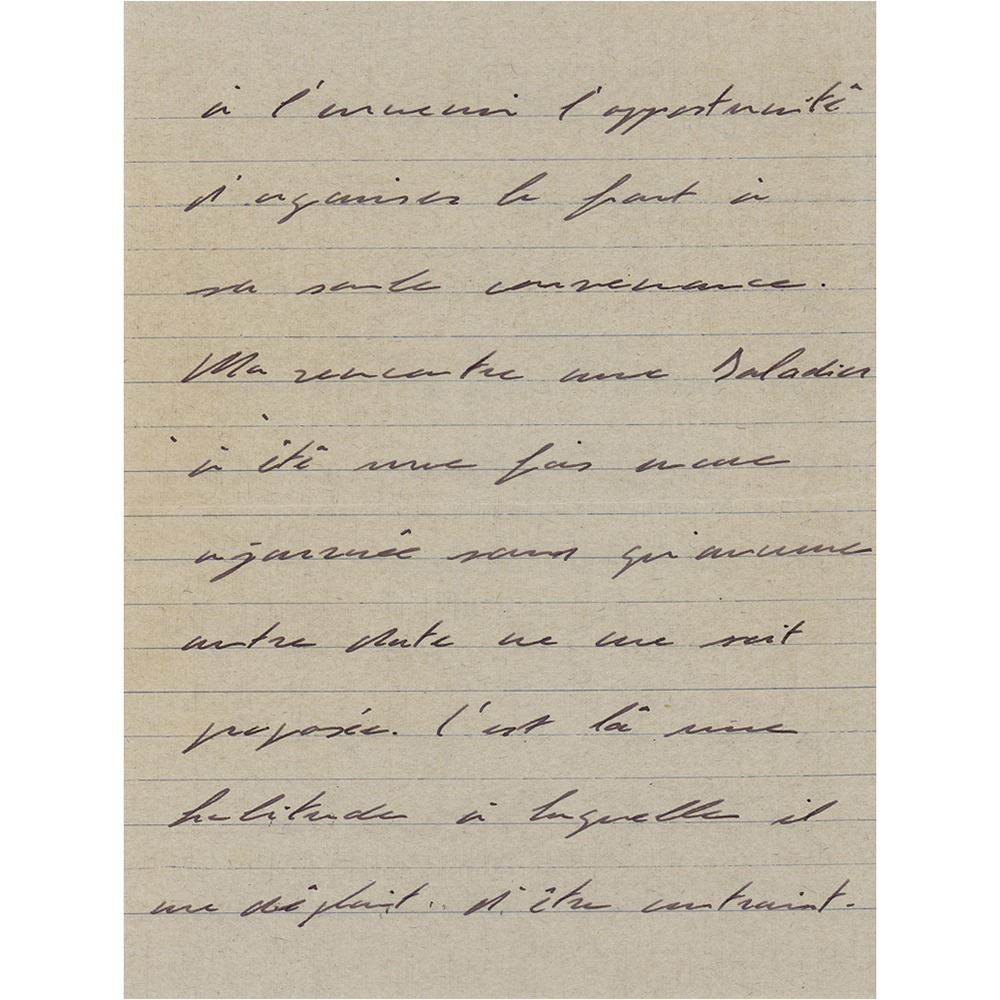 à l'ennemi l'opportunité
d'organiser le front à
sa seule convenance.
Ma rencontre avec Daladier
à été une fois encore
ajournée sans qu'aucune
autre date ne me soit
proposée. C'est là une
habitude à laquelle il
me déplait d'être contraint.